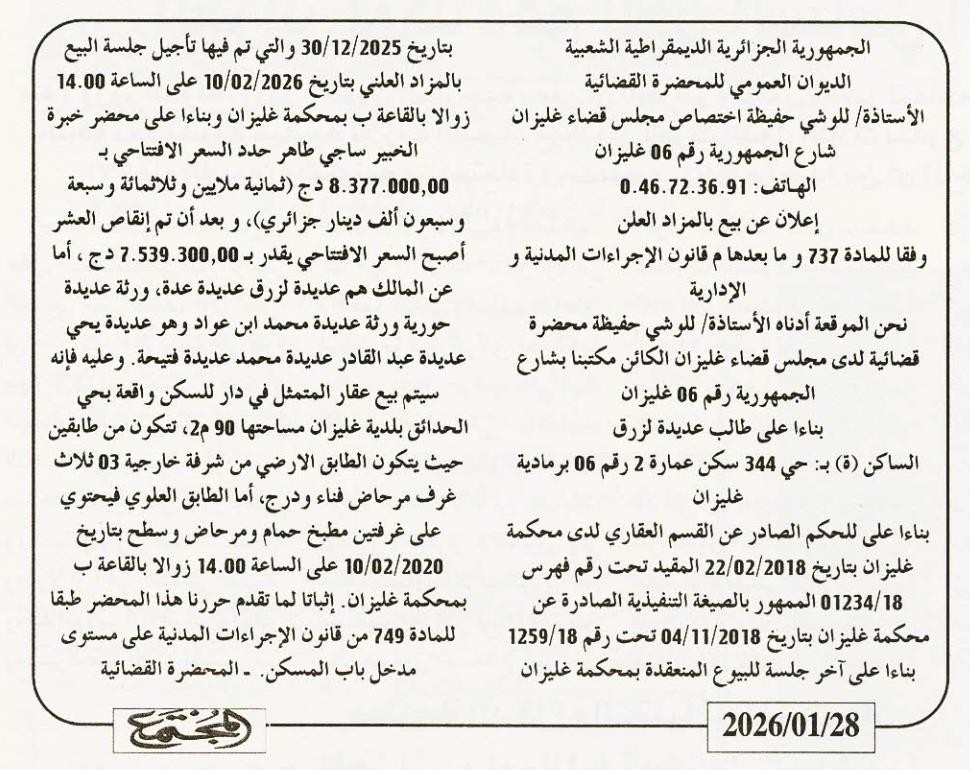 الجمهورية الجزائرية الديمقراطية الشعبية
الديوان العمومي للمحضرة القضائية
الأستاذة/ للوشي حفيظة اختصاص مجلس قضاء غليزان
شارع الجمهورية رقم 06 غليزان
الهاتف: 0.46.72.36.91
إعلان عن بيع بالمزاد العلن
وفقا للمادة 737 و ما بعدها م قانون الإجراءات المدنية و
الإدارية
نحن الموقعة أدناه الأستاذة/ للوشي حفيظة محضرة
قضائية لدى مجلس قضاء غليزان الكائن مكتبنا بشارع
الجمهورية رقم 06 غليزان
بناءا على طالب عديدة لزرق
الساكن (ة) بـ: حي 344 سكن عمارة 2 رقم 06 برمادية
غليزان
بناءا على للحكم الصادر عن القسم العقاري لدى محكمة
غليزان بتاريخ 22/02/2018 المقيد تحت رقم فهرس
01234/18 الممهور بالصيغة التنفيذية الصادرة عن
محكمة غليزان بتاريخ 04/11/2018 تحت رقم 1259/18
بناءا على آخر جلسة للبيوع المنعقدة بمحكمة غليزان
بتاريخ 30/12/2025 والتي تم فيها تأجيل جلسة البيع
بالمزاد العلني بتاريخ 10/02/2026 على الساعة 14.00
زوالا بالقاعة ب بمحكمة غليزان وبناءا على محضر خبرة
الخبير ساجي طاهر حدد السعر الافتتاحي بـ
8.377.000,00 دج (ثمانية ملايين وثلاثمائة وسبعة
وسبعون ألف دينار جزائري)، و بعد أن تم إنقاص العشر
أصبح السعر الافتتاحي يقدر بـ 7.539.300,00 دج ، أما
عن المالك هم عديدة لزرق عديدة عدة، ورثة عديدة
حورية ورثة عديدة محمد ابن عواد وهو عديدة يحي
عديدة عبد القادر عديدة محمد عديدة فتيحة. وعليه فإنه
سيتم بيع عقار المتمثل في دار للسكن واقعة بحي
الحدائق بلدية غليزان مساحتها 90 م2، تتكون من طابقين
حيث يتكون الطابق الارضي من شرفة خارجية 03 ثلاث
غرف مرحاض فناء ودرج، أما الطابق العلوي فيحتوي
على غرفتين مطبخ حمام ومرحاض وسطح بتاريخ
10/02/2020 على الساعة 14.00 زوالا بالقاعة ب
بمحكمة غليزان. إثباتا لما تقدم حررنا هذا المحضر طبقا
للمادة 749 من قانون الإجراءات المدنية على مستوى
مدخل باب المسكن. ـ المحضرة القضائية
2026/01/28
المجتمع